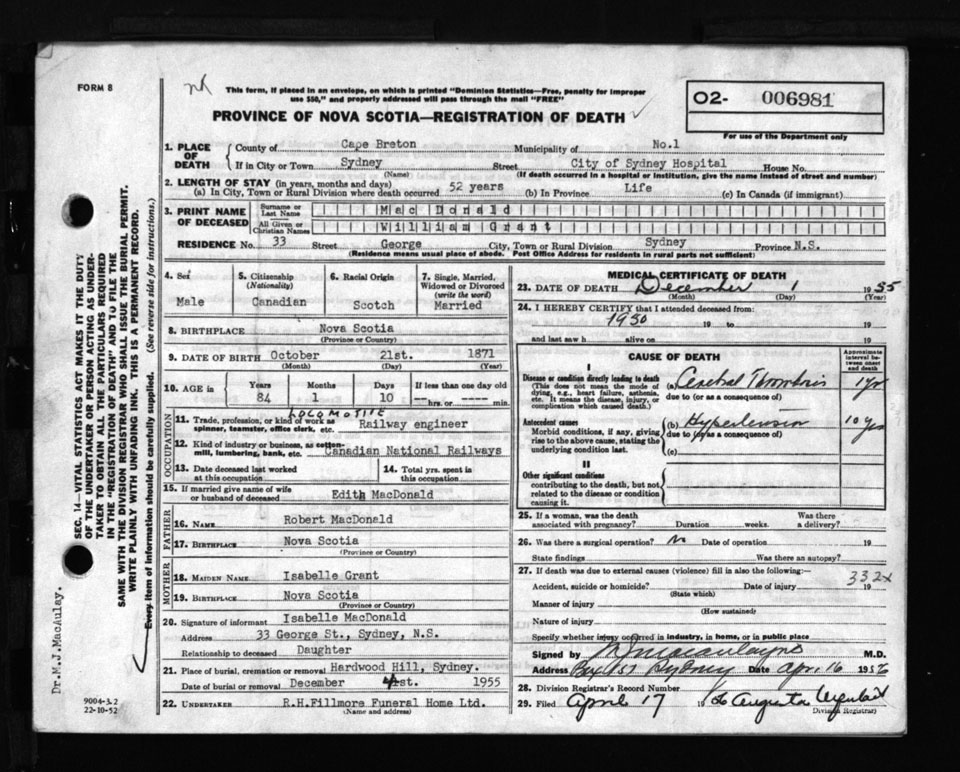 FORM 8
This form, if placed in an envelope, on which is printed "Dominion Statistics—Free, penalty for improper
use $50," and properly addressed will pass through the mail "FREE"
PROVINCE OF NOVA SCOTIA—REGISTRATION OF DEATH ✓
02- 006981
For use of the Department only
1. PLACE OF DEATH
County of Cape Breton Municipality of No.1
If in City or Town Sydney Street City of Sydney Hospital House No.
(Name) (If death occurred in a hospital or institution, give the name instead of street and number)
2. LENGTH OF STAY (in years, months and days)
(a) In City, Town or Rural Division where death occurred 52 years (b) In Province Life (c) In Canada (if immigrant)
3. PRINT NAME OF DECEASED
Surname or Last Name Mac Donald
All Given or Christian Names William Grant
RESIDENCE No. 33 Street George City, Town or Rural Division Sydney Province N.S.
(Residence means usual place of abode. Post Office Address for residents in rural parts not sufficient)
4. Sex Male
5. Citizenship (Nationality) Canadian
6. Racial Origin Scotch
7. Single, Married, Widowed or Divorced (write the word) Married
8. BIRTHPLACE Nova Scotia
(Province or Country)
9. DATE OF BIRTH October 21st. 1871
(Month) (Day) (Year)
10. AGE in Years Months Days If less than one day old
84 1 10 ---- hrs. or ---- min.
OCCUPATION
LOCOMOTIVE
11. Trade, profession or kind of work as spinner, teamster, office clerk, etc. Railway engineer
12. Kind of industry or business, as cotton-mill, lumbering, bank, etc. Canadian National Railways
13. Date deceased last worked at this occupation
14. Total yrs. spent in this occupation
15. If married give name of wife or husband of deceased Edith MacDonald
FATHER
16. NAME Robert MacDonald
17. BIRTHPLACE Nova Scotia
(Province or Country)
MOTHER
18. MAIDEN NAME Isabelle Grant
19. BIRTHPLACE Nova Scotia
(Province or Country)
20. Signature of informant Isabelle MacDonald
Address 33 George St., Sydney, N.S.
Relationship to deceased Daughter
21. Place of burial, cremation or removal Hardwood Hill, Sydney.
Date of burial or removal December 4st. 1955
22. UNDERTAKER R.H.Fillmore Funeral Home Ltd.
(Name and address)
MEDICAL CERTIFICATE OF DEATH
23. DATE OF DEATH December 1 1955
(Month) (Day) (Year)
24. I HEREBY CERTIFY that I attended deceased from:
1950 19 to 19
and last saw h alive on 19
CAUSE OF DEATH
Approximate interval between onset and death
I
Disease or condition directly leading to death
(This does not mean the mode of dying, e.g., heart failure, asthenia, etc. It means the disease, injury, or complication which caused death.)
(a) Cerebral Thrombosis 1 yr
due to (or as a consequence of)
Antecedent causes
Morbid conditions, if any, giving rise to the above cause, stating the underlying condition last.
(b) Hypertension 10 yrs
due to (or as a consequence of)
(c)
II
Other significant conditions
contributing to the death, but not related to the disease or condition causing it.
25. If a woman, was the death associated with pregnancy? Duration weeks. Was there a delivery?
26. Was there a surgical operation? No Date of operation 19
State findings Was there an autopsy?
27. If death was due to external causes (violence) fill in also the following:—
332X
Accident, suicide or homicide? Date of injury 19
(State which)
Manner of injury
(How sustained)
Nature of injury
Specify whether injury occurred in industry, in home, or in public place
Signed by M.D.
Address Box 151 Sydney Date Apr. 16 1956
28. Division Registrar's Record Number
29. Filed April 17 19 56 Augusta
Division Registrar)
SEC. 14—VITAL STATISTICS ACT MAKES IT THE DUTY
OF THE UNDERTAKER OR PERSON ACTING AS UNDER-
TAKER TO OBTAIN ALL THE PARTICULARS REQUIRED
IN THE "REGISTRATION OF DEATH" AND TO FILE THE
SAME WITH THE DIVISION REGISTRAR WHO SHALL ISSUE THE BURIAL PERMIT.
WRITE PLAINLY WITH UNFADING INK. THIS IS A PERMANENT RECORD.
Every item of information should be carefully supplied. (See reverse side for instructions.)
Dr.M.J.MacAulay.
9004-3.2
22-10-52